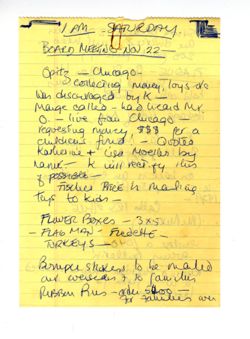 1 AM - SATURDAY.
BOARD MEETING NOV. 22 -
Opitz - Chicago -
collecting money, toys &
was discouraged by K -
Marge called - had heard Mr.
O. - live from Chicago -
requesting money $$$ for a
children's fund! - Quoted
Katherine + Lisa Moeller by
name - K will rectify this
if possible -
Fischer Price is mailing
toys to kids -
FLOWER BOXES - 3x5
- FLAG MAN -
TURKEYS -
Bumper stickers to be mailed
out to families
Ribbon Pins - order 500 -
for families